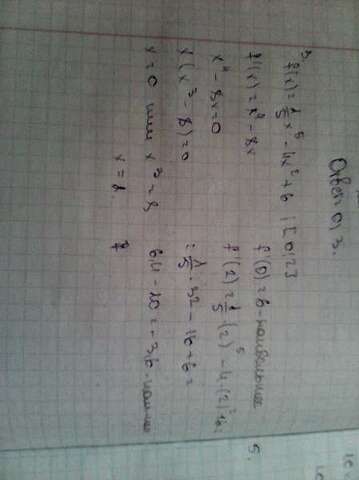 Ответ: 0; 3.
3. f(x) = 1/5 x⁵ - 4x² + 6 [0; 2]
f'(x) = x⁴ - 8x
x⁴ - 8x = 0
x(x³ - 8) = 0
x = 0 или x³ = 8
x = 2
f(0) = 6 - наибольшее
f(2) = 1/5 · (2)⁵ - 4 · (2)² + 6 =
= 1/5 · 32 - 16 + 6 =
6,4 - 10 = -3,6 -
5.